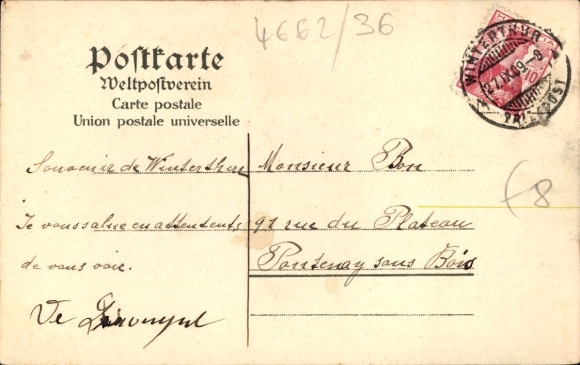 4662/36
Postkarte
Weltpostverein
Carte postale
Union postale universelle
WINTERTHUR
27.IX.09.-8
BRIEFPOST
10
Souvenir de Winterthur
Je vous salue en attentent,
de vous voir.
De
Monsieur Bon
91 rue du Plateau
Fontenay sous Bois
f8